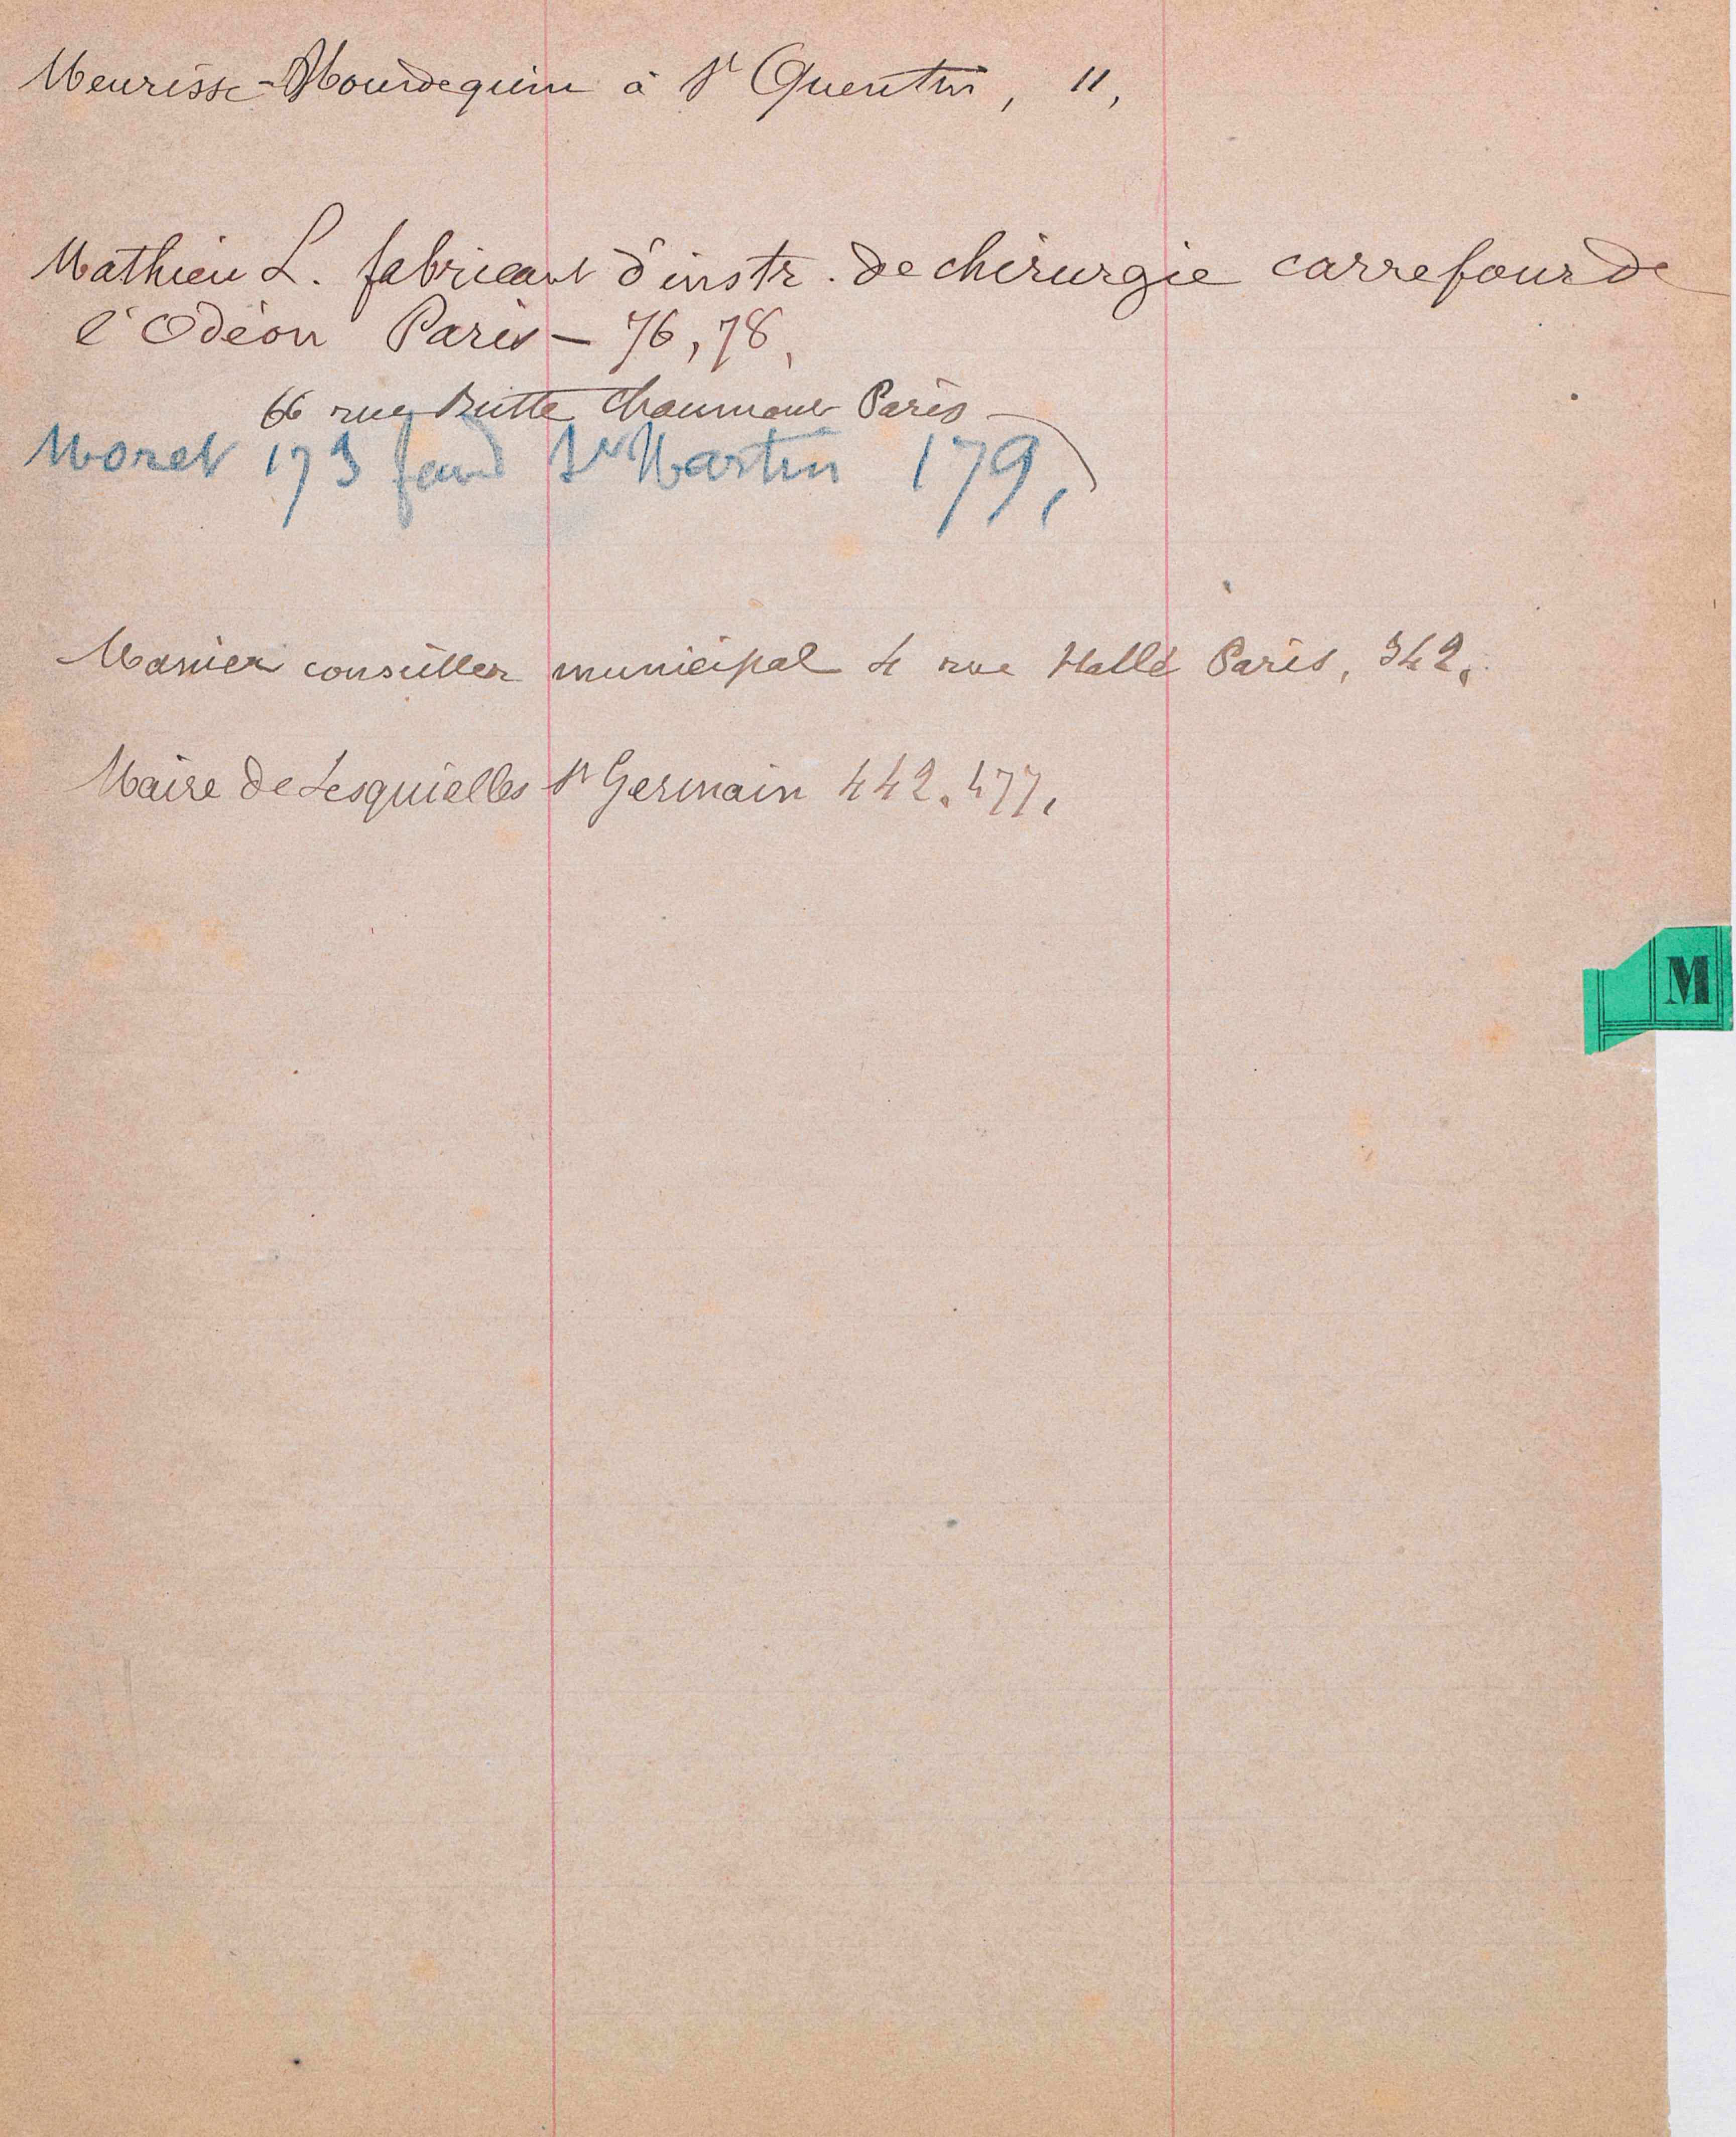 Meurisse-Hourdequin à St Quentin, 11,
Mathieu L. fabricant d'instr. de chirurgie carrefour de
l'Odéon Paris – 76, 78,
66 rue Butte Chaumont Paris –
Moret 173 faub St Martin 179,
Manier conseiller municipal 4 rue Hallé Paris, 342,
Maire de Lesquielles St Germain 442. 477,
M